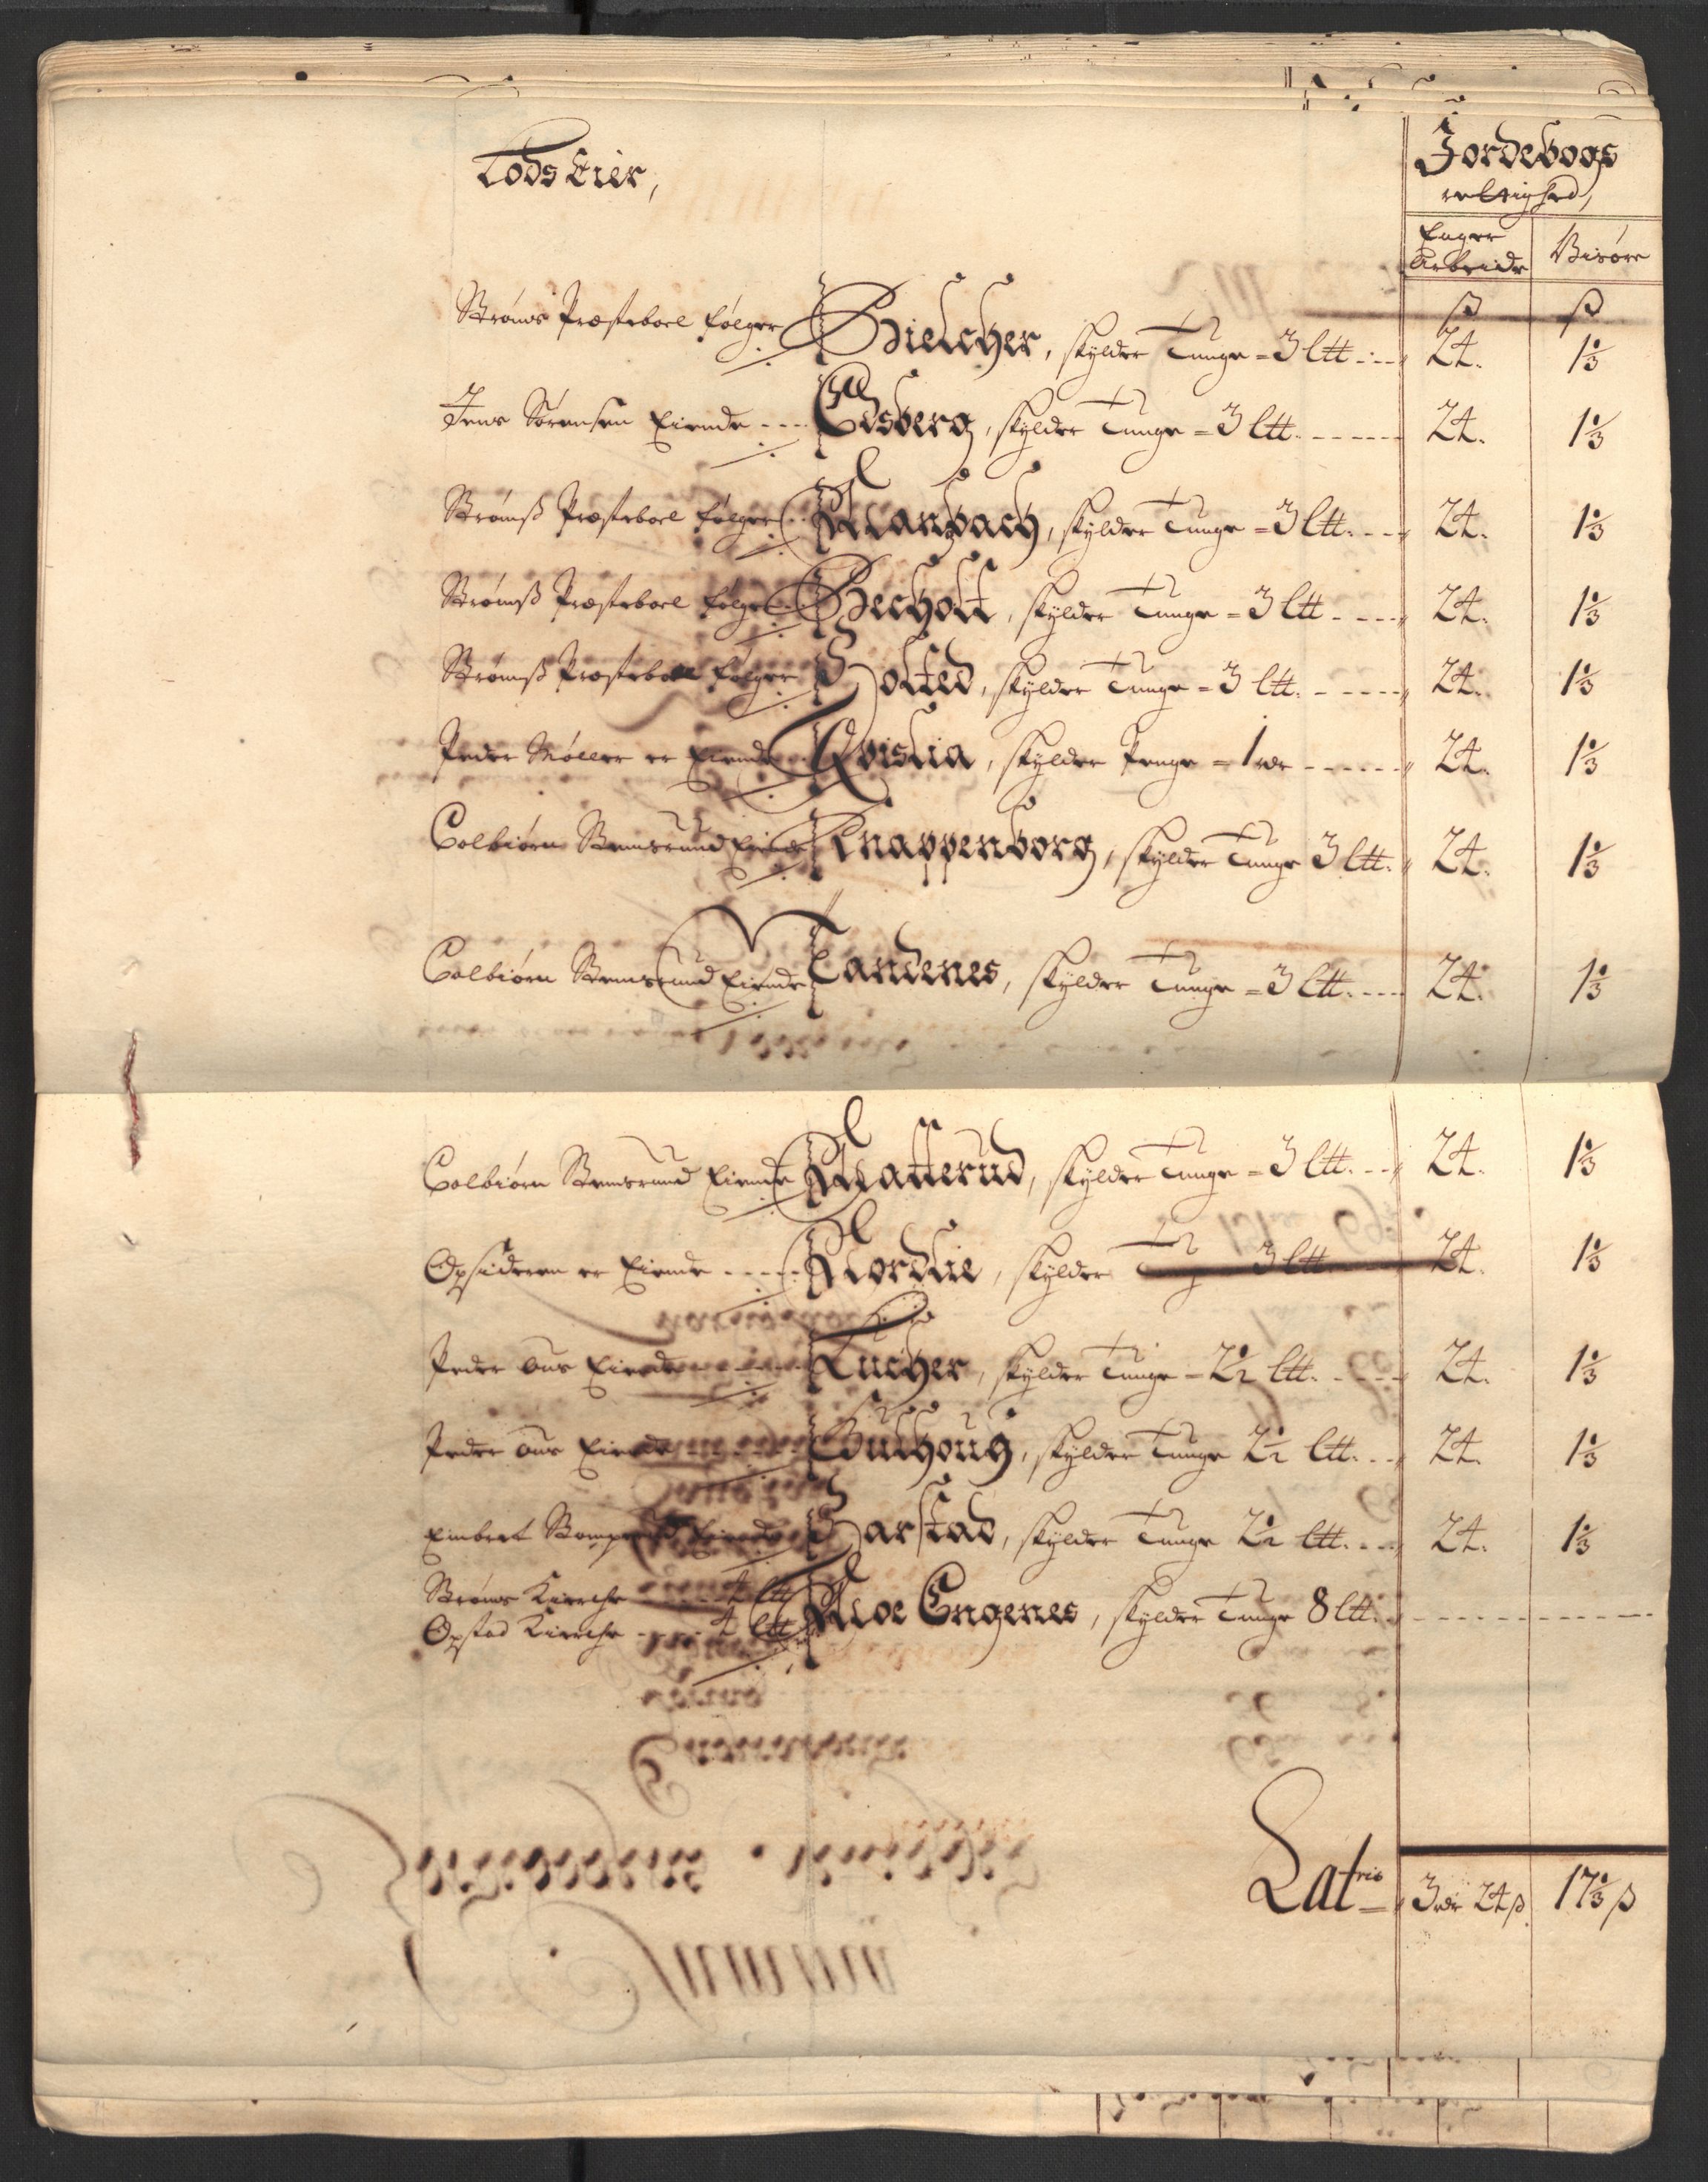 Lods Eier,
Jordebogs
rettighed,
Foger
Arbeide
Bisøre
ß ß
Strøms Præsteboel følger Bielcher, skylder Tunge = 3 ltt 24. 1⅓
Jens Sørensen Eiende Edsberg, skylder Tunge = 3 ltt. 24. 1⅓
Strømß Præsteboel følger Manbach, skylder Tunge = 3 ltt. 24. 1⅓
Strømß Præsteboel følger Becholt, skylder Tunge = 3 ltt 24. 1⅓
Strømß Præsteboel følger Holted, skylder Tunge = 3 ltt. 24. 1⅓
Peder Møller er Eiende Qvislia, skylder Penge = 1 rdr 24. 1⅓
Colbiørn Stemsrund Eiende Knappenborg, skylder Tunge 3 ltt. 24. 1⅓
Colbiørn Stemsrund Eiende Tandenes, skylder Tunge = 3 ltt. 24. 1⅓
Colbiørn Stemsrund Eiende Matterud, skylder Tunge = 3 ltt. 24. 1⅓
Opsideren er Eiende Nordlie, skylder Tung 3 ltt 24. 1⅓
Peder Aus Eiende Lucher, skylder Tunge = 2½ ltt. 24. 1⅓
Peder Aus Eiende Gulhouch, skylder Tunge 2½ ltt. 24. 1⅓
Embret Eiende Harstad, skylder Tunge 2½ ltt. 24. 1⅓
Strøms Kierche 4 ltt
Opstad Kierche 4 ltt Moe Engenes, skylder Tunge 8 ltt.
Latris 3 rdr 24 ß. 17⅓ ß